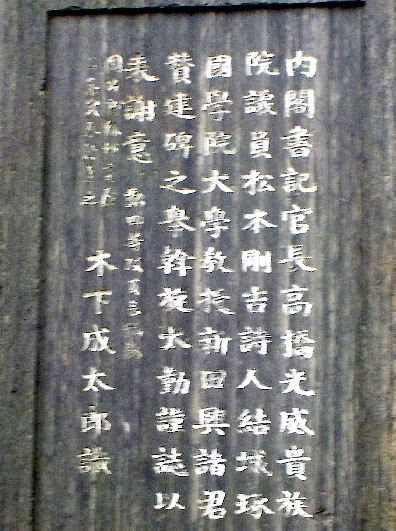 内閣書記官長高橋光威貴族
院議員松本剛吉詩人結城琢
國學院大學教授新田興諸君
賛建碑之擧斡旋太勤謹誌以
表謝意
木下成太郎識